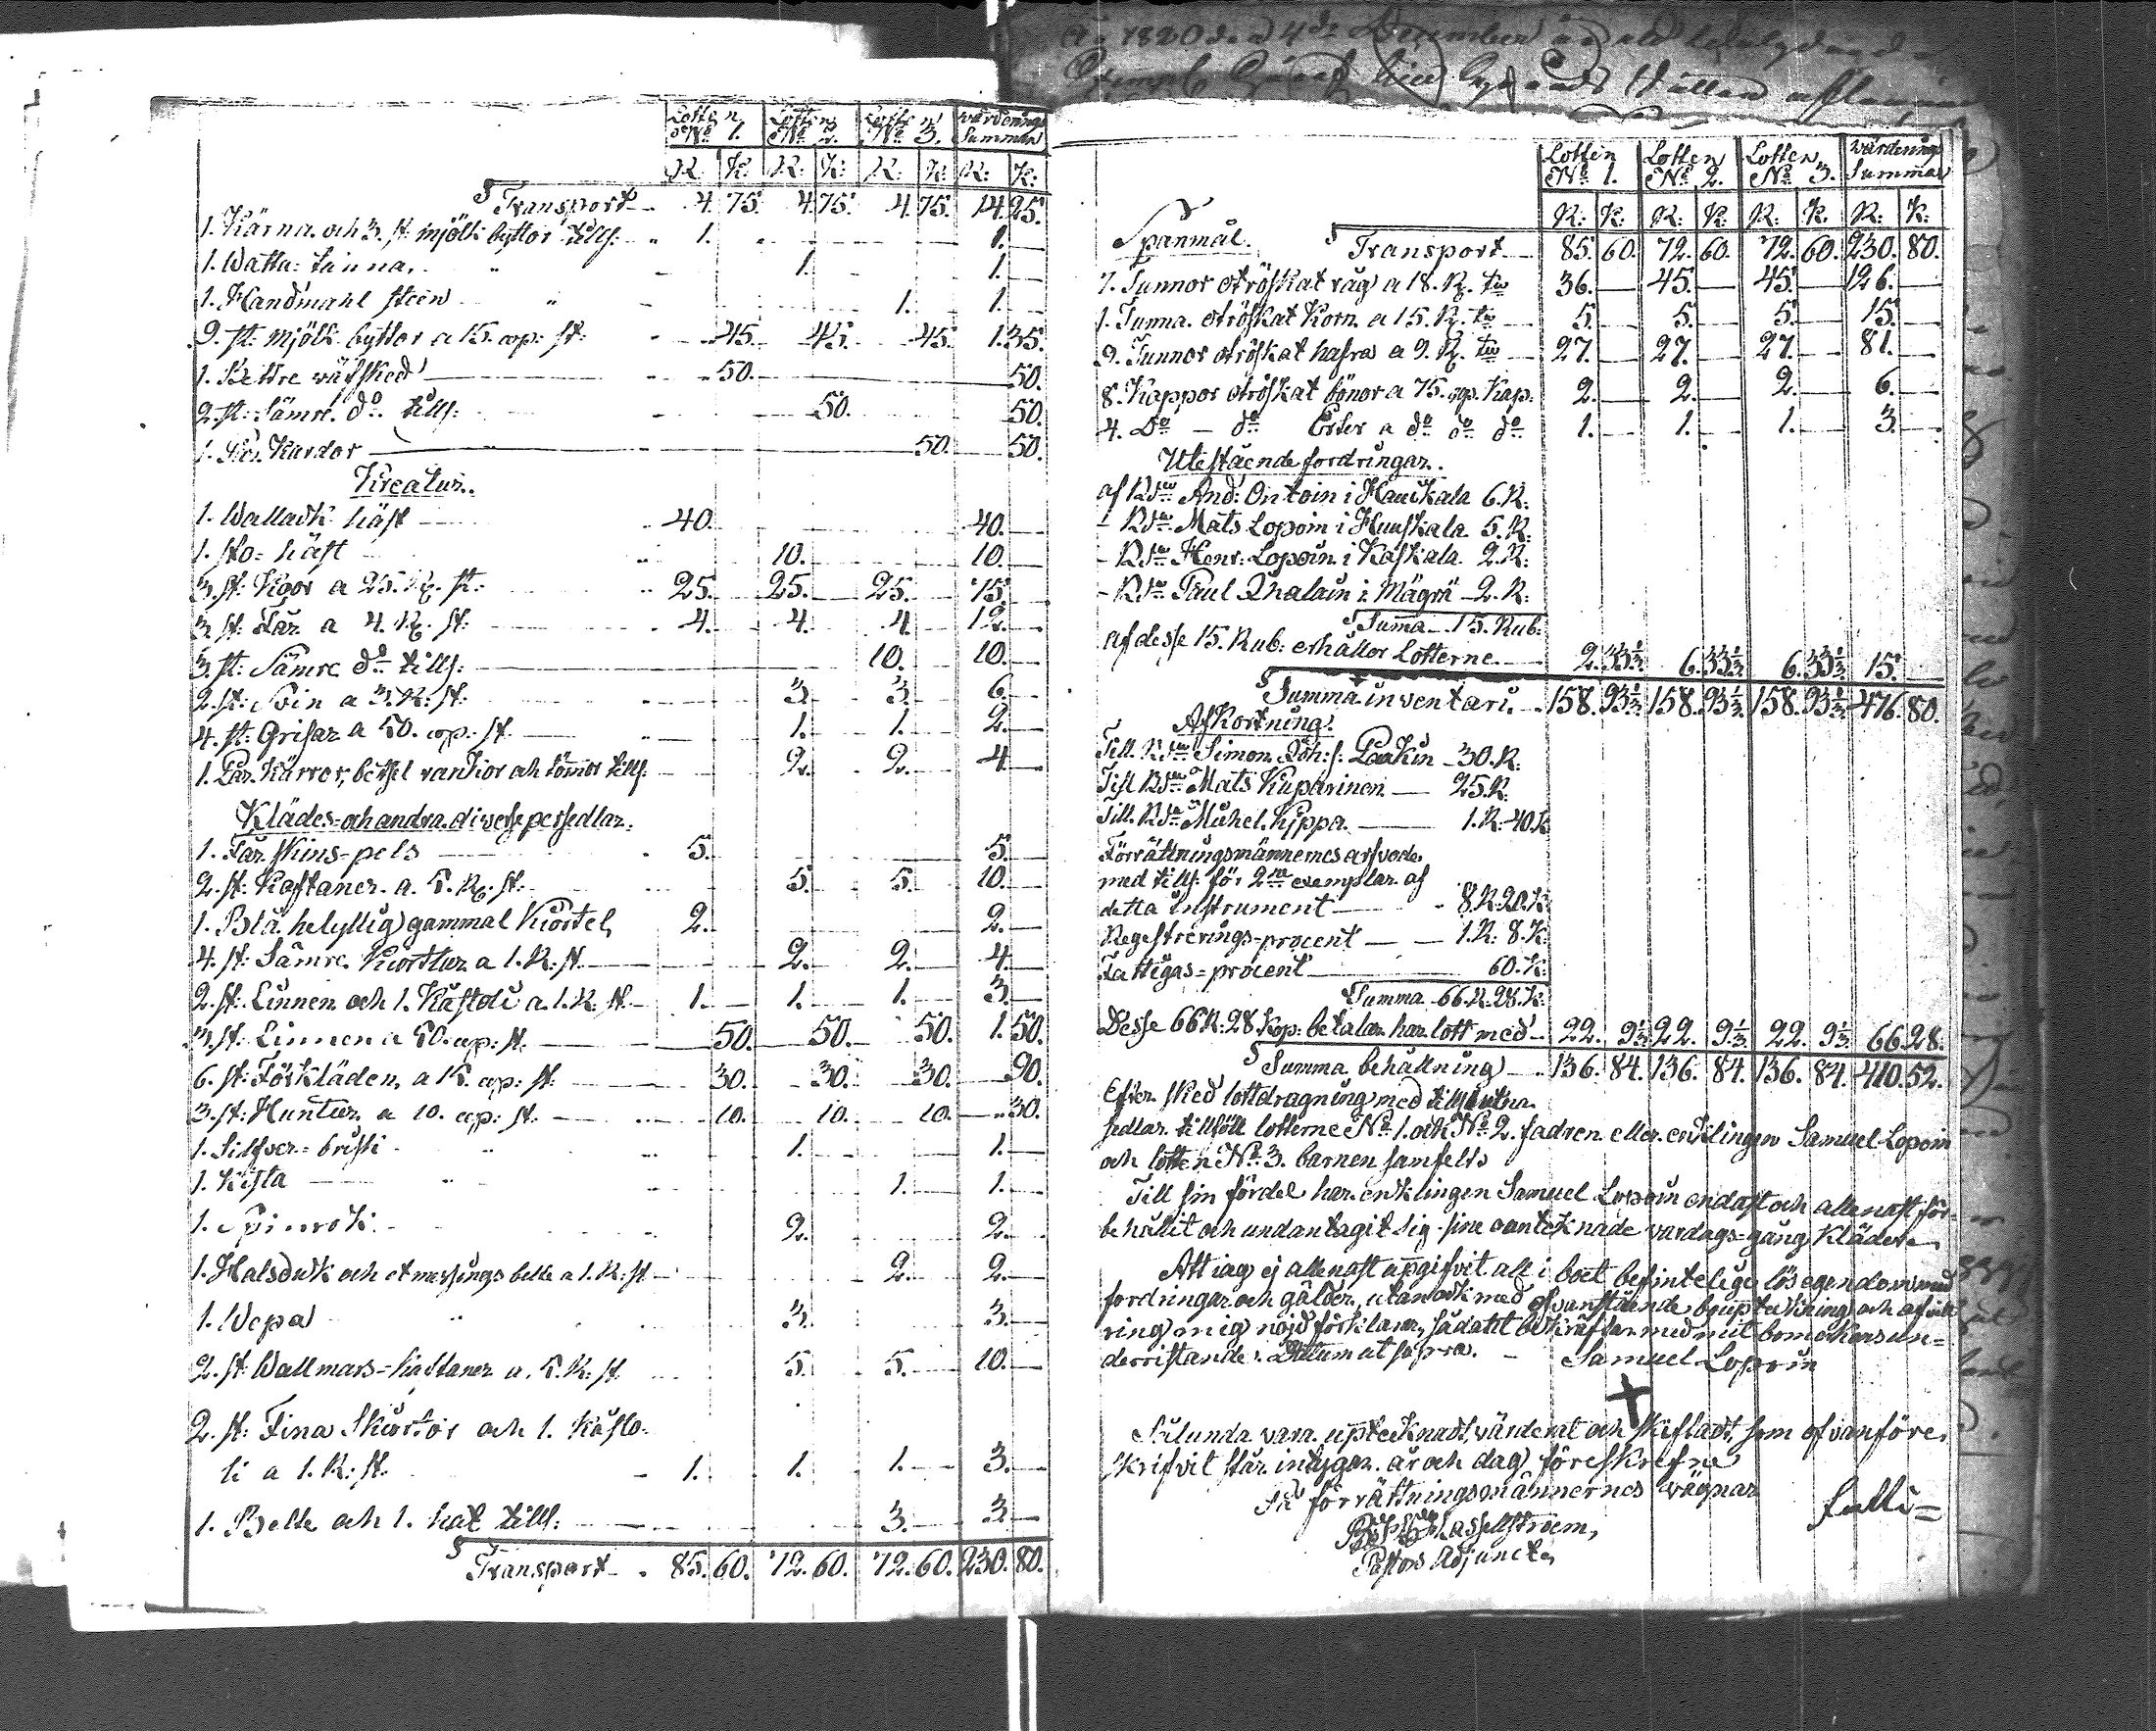 Lotten Lotten Lotten Värderings
No 1. No 2. No 3. Summan
R: K: R: K: R: K: R: K:
Transport 4. 75. 4. 75. 4. 75. 14. 25.
1. Kärna och 3. st. mjölk byttor tills: 1. 1.
1. Watta: tunna 1. 1.
1. Handmahl steen 1. 1.
9. st: mjölk byttor a 15. cop: st: 45. 45. 45. 1. 35.
1. Bettre väfsked 50. 50.
2. st: Sämre do tills: 50. 50.
1. Par Kardor 50. 50.
Kreatur.
1. Wallack häst 40. 40.
1. sto-häst 10. 10.
3. st: Kgor a 25. R. st: 25. 25. 25. 75.
3. st: Får a 4. R. st: 4. 4. 4. 12.
3. st: Sämre do tills: 10. 10.
2. st: Svin a 3. R: st. 3. 3. 6.
4. st: Grisar a 50. cop: st. 1. 1. 2.
1. Par Kärror, betsel rankor och tömor tills. 2. 2. 4.
Klädes- och andra diverse persedlar:
1. Får skins-pels 5. 5.
2. st: Kaftaner a 5. R: st. 5. 5. 10.
1. Blå helyllig gammal Kiortel 2. 2.
4. st: Sämre Kiortlar a 1. R: st. 2. 2. 4.
2. st: Linnen och 1. Kastoli a 1. R: st. 1. 1. 1. 3.
3. st: Linnen a 50. cop: st. 50. 50. 50. 1. 50.
6. st: Förkläden a 15. cop: st: 30. 30. 30. 90.
3. st: Huntur a 10. cop: st. 10. 10. 10. 30.
1. Silfver-briski 1. 1.
1. Kista 1. 1.
1. Spinrock 2. 2.
1. Halsduk och et messings belte a 1. R: st. 2. 2.
1. Wepa 3. 3.
2. st: Wallmars-kaftaner a 5. R: st. 5. 5. 10.
2. st: Fina Skiortor och 1. Kasto-
li a 1. R: st. 1. 1. 1. 3.
1. Belte och 1. hat tills: 3. 3.
Transport 85. 60. 72. 60. 72. 60. 230. 80.
Ao 1820 den 4de December
Lotten Lotten Lotten Värderings
No 1. No 2. No 3. Summan
R: K: R: K: R: K. R: K:
Spanmål. Transport 85. 60. 72. 60. 72. 60. 230. 80.
7. Tunnor otröskat råg a 18. R. tn 36. 45. 45. 126.
1. Tunna otröskat Korn a 15. R. tn 5. 5. 5. 15.
9. Tunnor otröskat hafra a 9. R. tn 27. 27. 27. 81.
8. Kappor otröskat bönor a 75. cop. Kap. 2. 2. 2. 6.
4. Do do Erter a do do do 1. 1. 1. 3.
Utestående fordringar.
af Bdn And: Ontoin i Hauskala 6. R:
- Bdn Mats Lopoin i Hauskala 5. R:
- Bdn Henr: Lopoin i Kaskala 2. R:
- Bdn Paul Ihalain i Mägrä 2. R:
Summa 15. Rub:
af desse 15. Rub: erhåller Lotterne 2. 33⅓ 6. 33⅓ 6. 33⅓ 15.
Summa inventari. 158. 93⅓ 158. 93⅓ 158. 93⅓ 476. 80.
Afkortning.
Till Bdn Simon Joh: s: Paukin 30. R:
Till Bdn Mats Kuparinen 25. R:
Till Bdn Michel Kyppa 1. R: 40. K
Förrättningsmännernes arfvode
med tills: för 2ne exemplar af
detta instrument 8. R: 20. K:
Regestrerings-procent 1. R: 8. K:
Fattigas-procent 60. K:
Summa 66. R: 28. K:
Desse 66 R: 28 Kop: betalar har lott med 22. 9⅓ 22. 9⅓ 22. 9⅓ 66 28.
Summa behållning 136. 84. 136. 84. 136. 84. 410. 52.
Efter sked lottdragning med tillslutna
sedlar tillföll lotterne No 1. och No 2. fadren eller enklingen Samuel Lopoin
och lotten No 3. barnen samfelt
Till sin fördel har enklingen Samuel Lopoin endast och allenast för-
behållit och undantagit sig sine oantecknade vardags-gång kläder.
Att iag ej allenast upgifvit all i boet befintelige lös egendom med
fordringar och gälder, utan ock med ofvanstående bouptekning och afvitt-
ring mig nöjd förklarar, sådant bekräftar med mit bomärkes un-
derristande. Datum ut supra. Samuel Lopoin
Sålunda vara uptecknadt, värderat och skiftadt, som ofvanföre
skrifvit står intygar. år och dag föreskrefne
På förrättningsmännernes wägnar
Hasselstroem,
Pastors Adjunct.